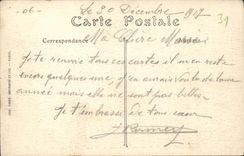 06.
Le 20 Décembre 1917
39
Carte Postale
Correspondance
Ma Chère
Je te renvoie tous ces cartes il m'en reste
encore quelques unes, j'en aurais voulu de bonne
année mais elle ne sont pas belles
Je t'embrasse de tous cœur